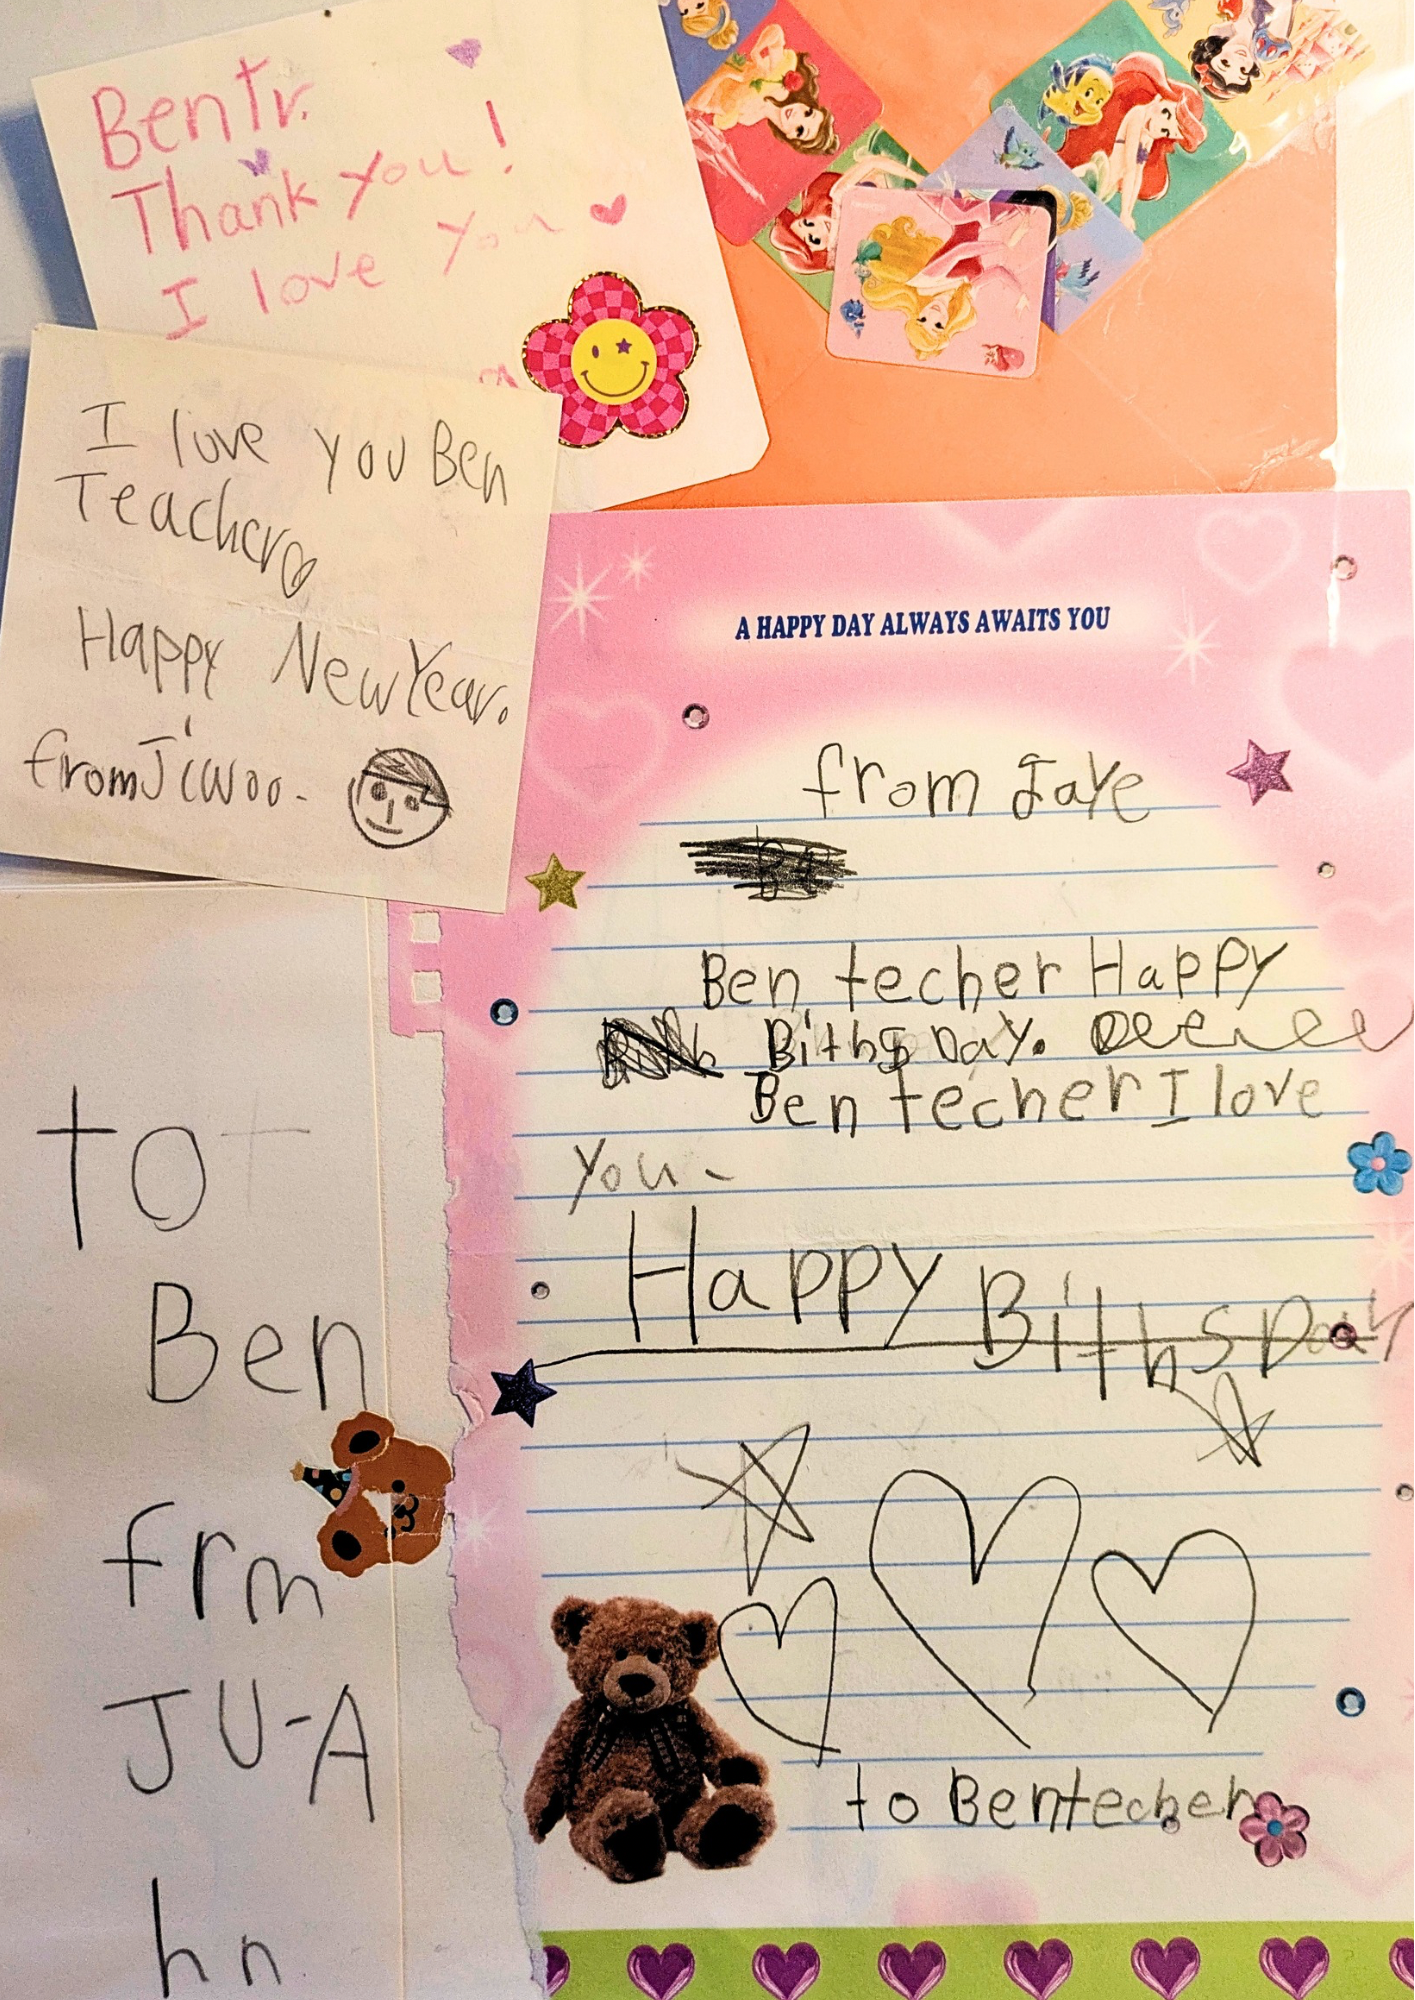 Ben Tr.
Thank you!
I love you
I love you Ben
Teacher
Happy New Year.
from Jiwoo.
A HAPPY DAY ALWAYS AWAITS YOU
from Jaye
Ben techer Happy
Biths Day.
Ben techer I love
you
Happy BithsDay
to Bentecher
to
Ben
frm
JU-A
hn